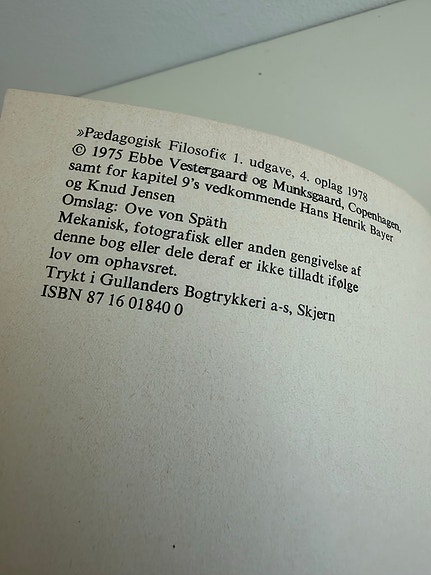 »Pædagogisk Filosofi« 1. udgave, 4. oplag 1978
© 1975 Ebbe Vestergaard og Munksgaard, Copenhagen,
samt for kapitel 9's vedkommende Hans Henrik Bayer
og Knud Jensen
Omslag: Ove von Späth
Mekanisk, fotografisk eller anden gengivelse af
denne bog eller dele deraf er ikke tilladt ifølge
lov om ophavsret.
Trykt i Gullanders Bogtrykkeri a-s, Skjern
ISBN 87 16 01840 0